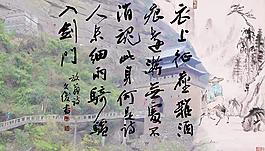 衣上征塵雜酒
痕遠遊無處不
消魂此身合是詩
人未細雨騎驢
入劍門
放翁詩